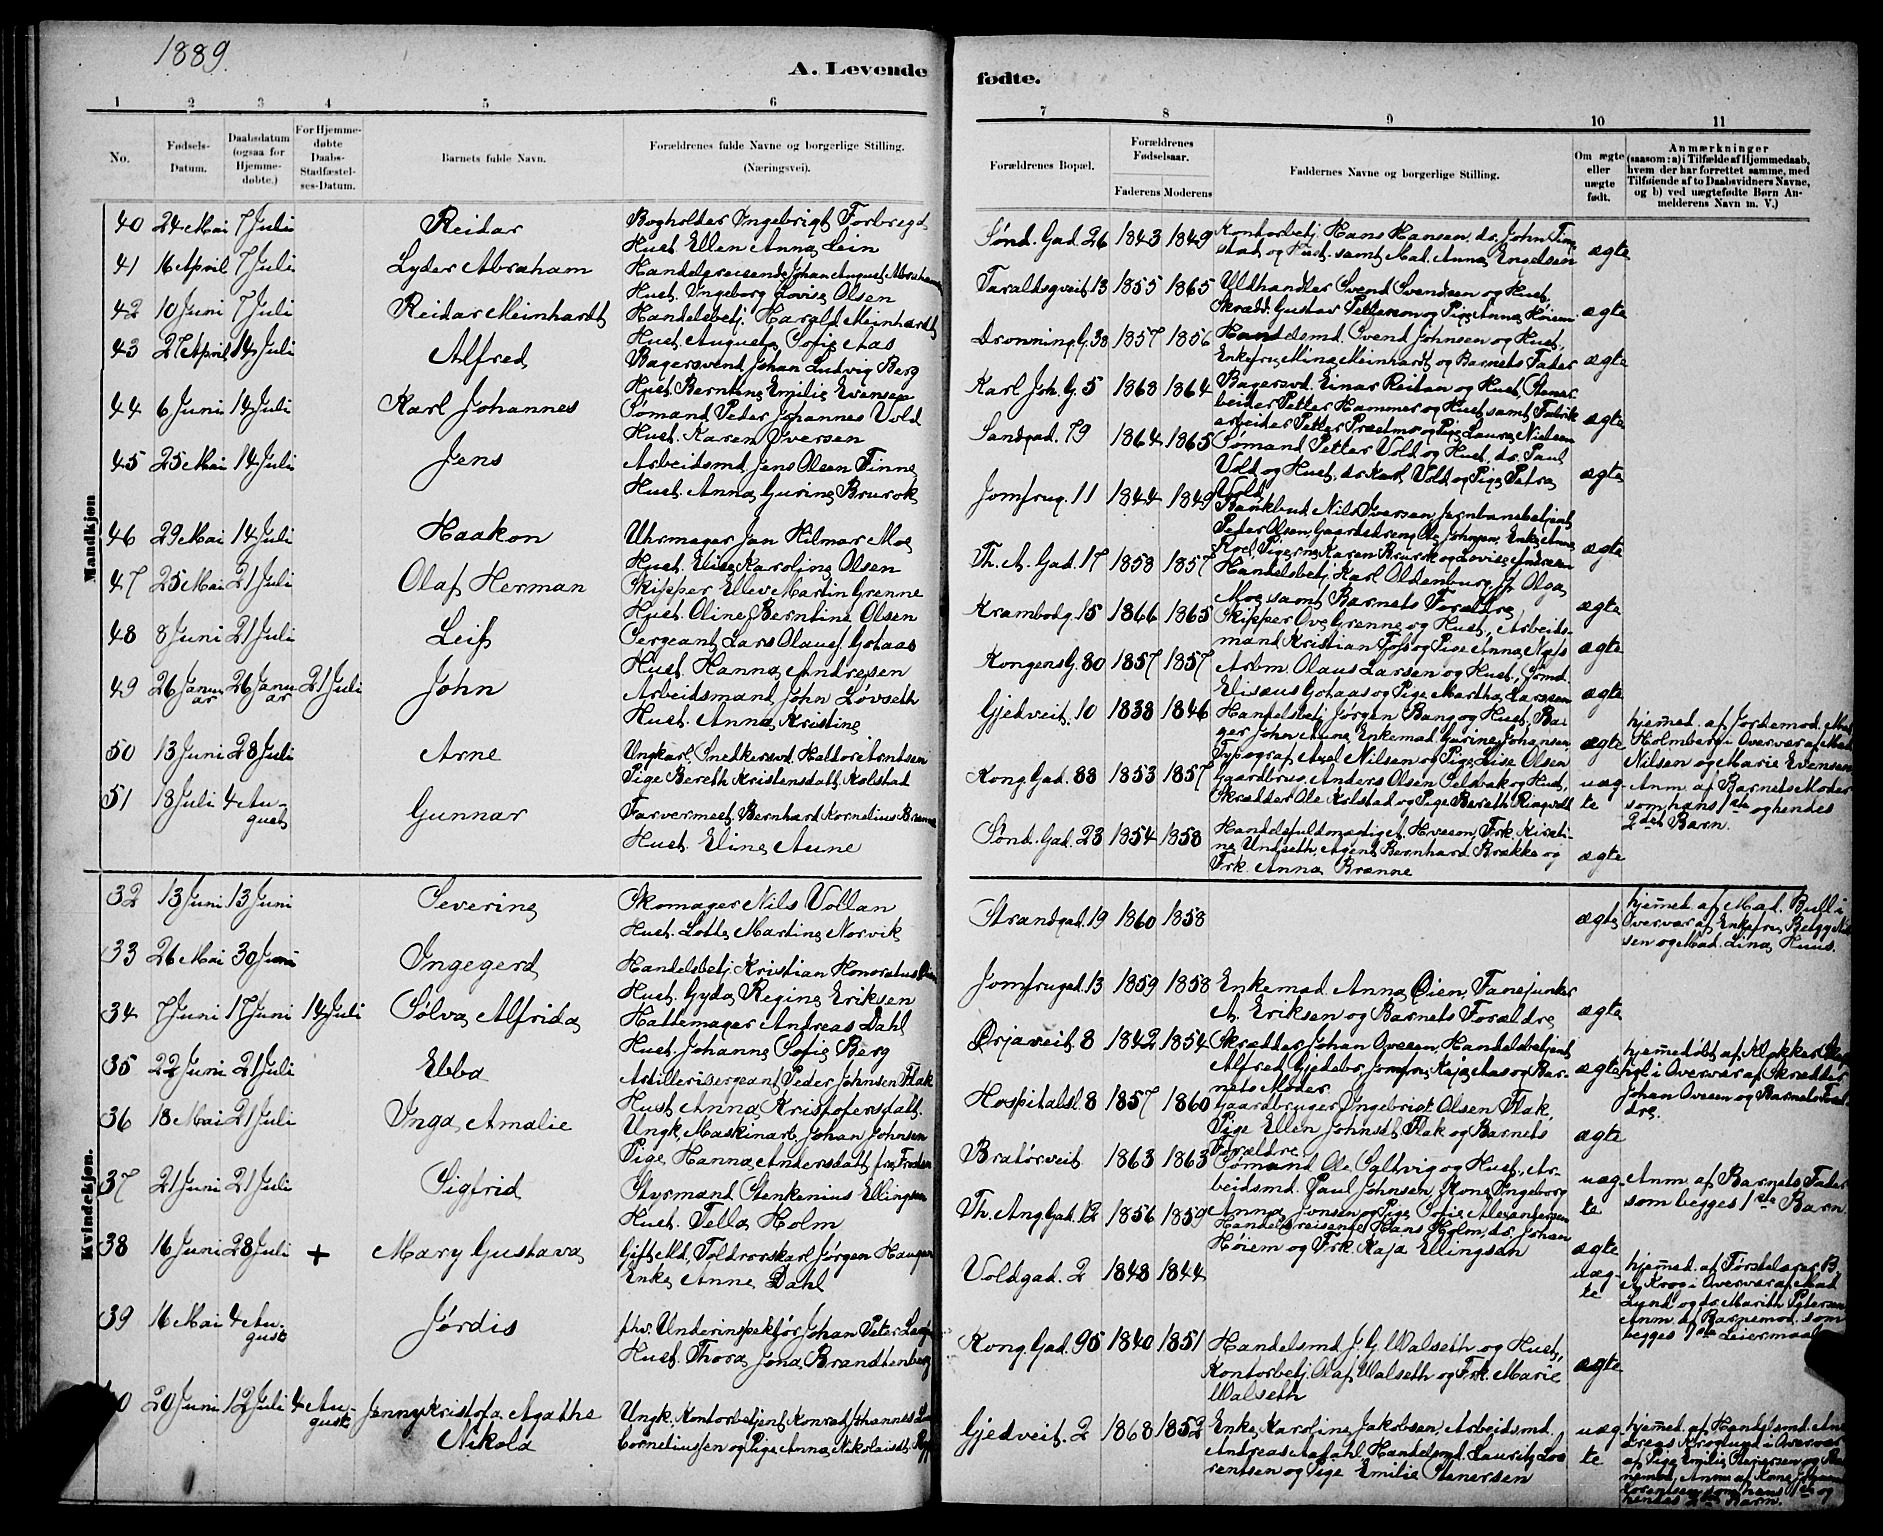 1889.
A. Levende fødte.
1 2 3 4 5 6 7 8 9 10 11
No.
Fødsels-Datum.
Daabsdatum (ogsaa for Hjemme-døbte.)
For Hjemme-døbte Daabs-Stadfæstel-ses-Datum.
Barnets fulde Navn.
Forældrenes fulde Navne og borgerlige Stilling. (Næringsvei).
Forældrenes Bopæl.
Forældrenes Fødselsaar.
Faderens Moderens
Faddernes Navne og borgerlige Stilling.
Om ægte eller uægte født.
Anmærkninger (saasom: a) i Tilfælde af Hjemmedaab, hvem der har forrettet samme, med Tilføiende af to Daabsvidners Navne, og b) ved uægtefødte Børn Anmelderens Navn m. V.)
Mandkjøn
40 24 Mai 7 Juli Reidar Bogholder Ingebrigt Forbregd
Hust. Ellen Anna Lein
Sønd. Gad. 26 1843 1849 Kontorbetj. Hans Hansen, ds. John
stad og Hust. samt Mad. Anna Engelsen ægte
41 16 April 7 Juli Lyder Abraham Handelsreisende Johan August
Hust. Ingeborg Lovise Olsen
Taraldsgveit 13 1855 1865 Uldhandler Svend Svendsen og Hust,
Skrædd. Gustav Petterson og Pige Anna Høiem ægte
42 10 Juni 7 Juli Reidar Meinhardt Handelsbetj. Harald Meinhardt
Hust. Augusta Sofie Aas
Dronning. G. 38 1857 1856 Handelsmd. Svend Johnsen og Hust,
Enkefru Mina Meinhardt og Barnets Fader ægte
43 27 April 14 Juli Alfred Bagersvend Johan Ludvig Berg
Hust. Berntine Emilie Evensen
Karl Joh. G. 5 1863 1864 Bagersvd. Einar Reitan og Hust, Stenar-
beider Petter Hammer og Hust samt Fabrik
arbeider Petter Præstmo og Pige Laura Nielsen ægte
44 6 Juni 14 Juli Karl Johannes Sømand Peder Johannes Vold
Hust. Karen Iversen
Sandgad. 79 1864 1865 Sømand Petter Vold og Hust, ds. Paul
Vold og Hust, ds Karl Vold og Pige Petra
Vold ægte
45 25 Mai 14 Juli Jens Arbeidsmd. Jens Olsen Tinne
Hust. Anna Gurine Brurok
Jomfrug. 11 1844 1849 Bankbud Nils Iversen, Jernbanebetjent
Peder Olsen, Gaardsdreng Ole Johnsen, Enke Anne
ægte
46 29 Mai 14 Juli Haakon Uhrmager Jan Hilmar Moe
Hust. Elise Karoline Olsen
Th. A. Gad. 17 1858 1857 Handelsbetj. Karl Oldenburg, Jfr Olga
Moe samt Barnets Forældre ægte
47 25 Mai 21 Juli Olaf Herman Skipper Ellev Martin Grenne
Hust. Oline Berntine Olsen
Krambodg. 15 1866 1865 Skipper Ove Grenne og Hust, Arbeids-
mand Kristian Foss og Pige Anna Næss ægte
48 8 Juni 21 Juli Leif Sergeant Lars Olauf Gotaas
Hust. Hanna Andresen
Kongens G. 80 1857 1857 Arbm. Olaus Larsen og Hust, Sømd.
Elisæus Gotaas og Pige Martha Larsen ægte
49 26 Januar 26 Januar 21 Juli John Arbeidsmand John Løvseth
Hust. Anna Kristine
Gjedveit. 10 1838 1846 Handelsbetj. Jørgen Bang og Hust, Ba-
ger John Aune, Enkemad. Gurine Johansen ægte
hjemmed. af Jordemod.
Holmberg i Overvær af Mad.
Nilsen og Marie Evensen
50 13 Juni 28 Juli Arne Ungkarl, Snedkersvd. Haldor Arntsen
Pige Bereth Kristensdatt. Kolstad
Kong. Gad. 88 1853 1857 Gaardbrug. Anders Olsen Selsbak og Hust,
Skrædder Ole Kolstad og Pige Bereth Ringvold uægte
Anm. af Barnets Moder
som hans 1ste og hendes
2det Barn.
51 18 Juli 4 August Gunnar Farvermest. Bernhard Kornelius Brænne
Hust. Eline Aune
Sønd. Gad. 23 1854 1858 Handelsfuldmægtiget Hveson, Frk. Kristi-
ne Undseth, Agent Bernhard Brække og
Frk. Anna Brænne ægte
Kvindekjøn.
32 13 Juni 13 Juni Severine Skomager Nils Vollan
Hust. Lotte Martine Norvik
Strandgad. 19 1860 1858 ægte
hjemmed. af Mad. Bull i
Overvær af Enkefru
sen og Mad. Lina Huus.
33 26 Mai 30 Juni Ingegerd Handelsbetj. Kristian Honoratus
Hust. Gyda Regine Eriksen
Jomfrugad. 13 1859 1858 Enkemad. Anna Øien, Fanejunker
A. Eriksen og Barnets Forældre ægte
34 7 Juni 17 Juni 14 Juli Sølva Alfrida Hattemager Andreas Dahl
Hust. Johanne Sofie Berg
Ørjaveit 8 1842 1854 Skrædder Johan Ovesen, Handelsbetjent
Alfred Gjedebo, Jomfru Kaja Aas og Bar-
nets Moder ægte
hjemmedøbt af Klokker
i Overvær af Skrædder
Johan Ovesen og Barnets Foræl-
dre.
35 22 Juni 21 Juli Ebba Artillerisergeant Peder Johnsen Flak
Hust Anna Kristofersdatt.
Hospitalsl. 8 1857 1860 Gaardbruger Ingebrigt Olsen Flak,
Pige Ellen Johnsdt. Flak og Barnets
Forældre ægte
36 18 Mai 21 Juli Inga Amalie Ungk. Maskinarb. Johan Johnsen
Pige Hanna Andersdatt. fra Frosten
Bratørveit 1863 1863 Sømand Ole Saltvig og Hust, Ar-
beidsmd. Paul Johnsen, Kone Ingeborg
Anna Jonsen og Pige Sofie Alexandersen uægte
Anm. af Barnets Fader
som begges 1ste Barn.
37 21 Juni 21 Juli Sigfrid Styrmand Stenkenius Ellingsen
Hust. Tella Holm
Th. Ang. Gad. 12 1856 1859 Handelsreisende Hans Holm, ds. Johan
Høiem og Frk. Kaja Ellingsen ægte
38 16 Juni 28 Juli + Mary Gustava Gift Md, Toldrorskarl Jørgen Haugen
Enke Anne Dahl
Voldgad. 2 1848 1844 uægte
hjemmed. af Førstelærer
Krog i Overvær af Mad
Lund og ds. Marith Petersen
Anm. af Barnemod. som
begges 1ste Leiermaal
39 16 Mai 4 August Jørdis fhv. Underinspektør Johan Peter
Hust. Thora Jona Brandtenberg
Kong. Gad. 95 1840 1851 Handelsmd J. G. Walseth og Hust,
Kontorbetj. Olaf Walseth og Frk. Marie
Walseth ægte
0 20 Juni 12 Juli 4 August Jenny Kristofa Agathe
Nikola
Ungk. Kontorbetjent Konrad Johannes
Corneliussen og Pige Anna Nikolaisdt.
Gjedveit. 2 1868 1852 Enke Karoline Jakobsen, Arbeidsmd.
Andreas Aadahl, Handelsmd. Laurits Lo
rentsen og Pige Emilie Stenersen uægte
hjemmed. af Handelsmd. An-
dreas Kroglund i Overvær
af Pige Emilie Stenersen og
Anm. af Kone
Lorentsen som hans 1ste og
hendes Barn.